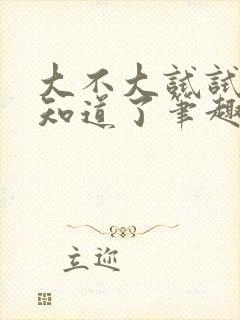 大不大试试
知道了笔趣
立迩